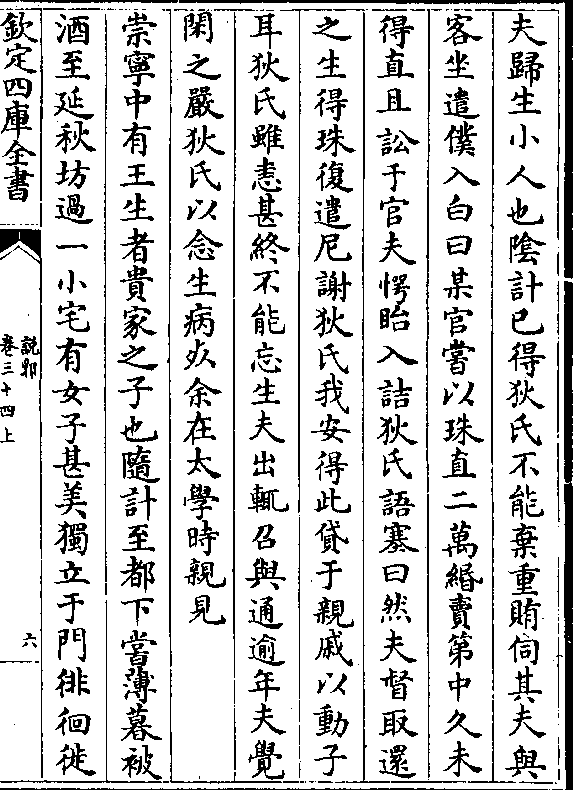 夫歸生小人也陰計已得狄氏不能棄重賄伺其夫與
客坐遣僕入白曰某官嘗以珠直二萬緡賣第中久未
得直且訟于官夫愕眙入詰狄氏語塞曰然夫督取還
之生得珠復遣尼謝狄氏我安得此貸于親戚以動子
耳狄氏雖恚甚終不能忘生夫出輒召與通逾年夫覺
閑之嚴狄氏以念生病死余在太學時親見
崇寧中有王生者貴家之子也隨計至都下嘗薄暮被
酒至延秋坊過一小宅有女子甚美獨立于門徘徊徙
欽定四庫全書
說郛
卷三十四上
六